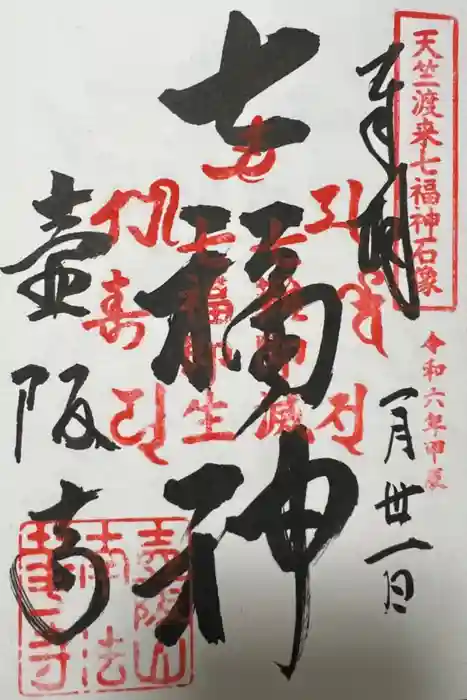 天竺渡来七福神石像
奉拝
令和六年甲辰
一月卅一日
七福神
七難即滅
七福即生
壷阪寺
壺阪山
南法
華寺